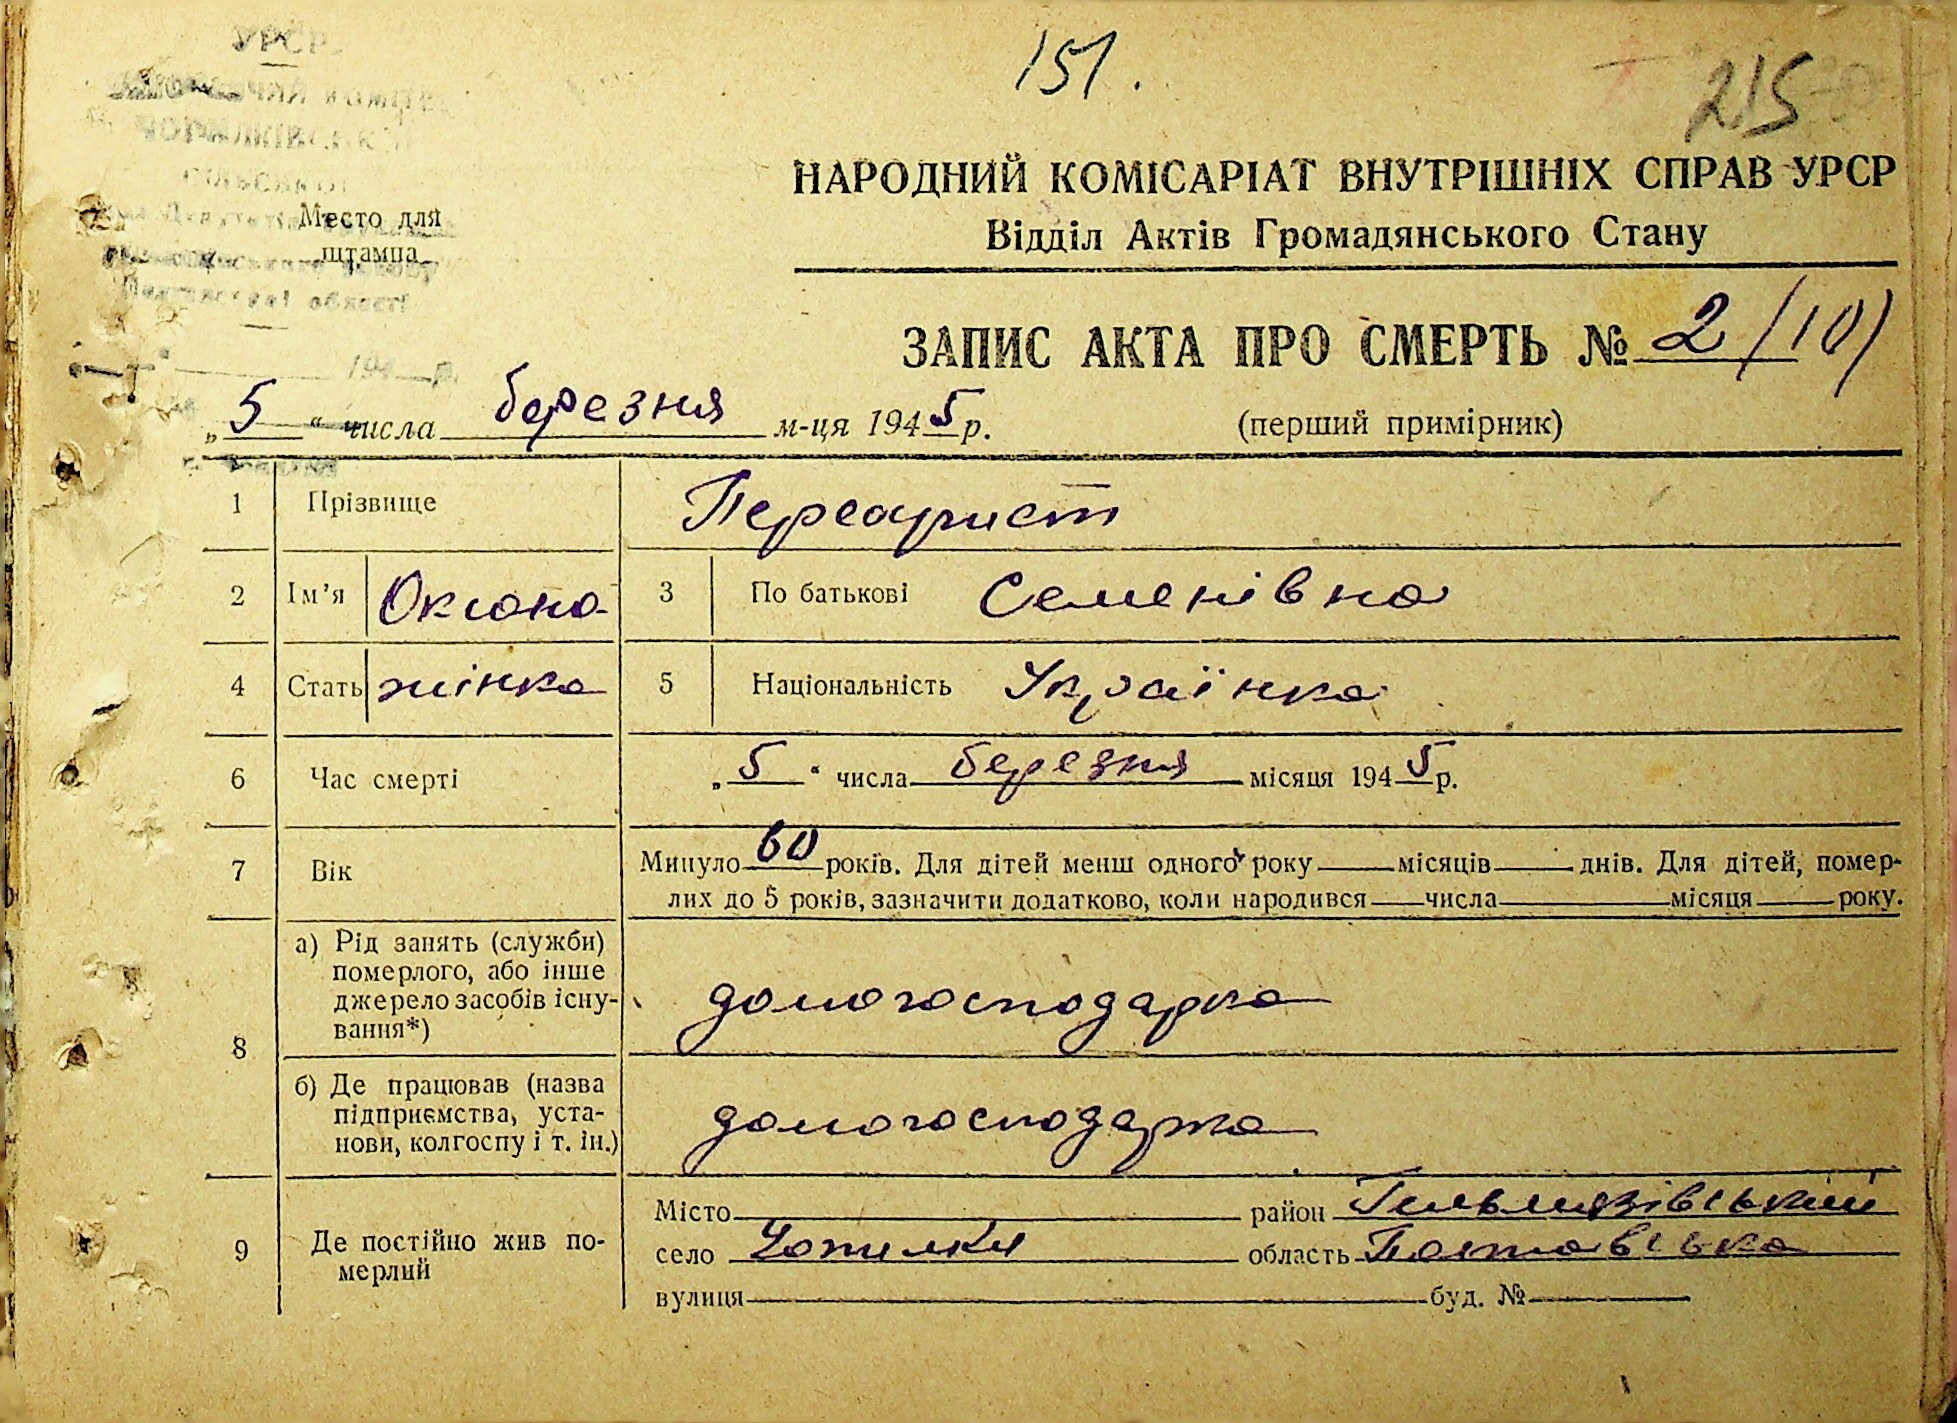 УРСР
151.
215
НАРОДНИЙ КОМІСАРІАТ ВНУТРІШНІХ СПРАВ УРСР
Відділ Актів Громадянського Стану
Место для
штампа
області
ЗАПИС АКТА ПРО СМЕРТЬ № 2/10)
„5“ числа березня м-ця 1945 р.
(перший примірник)
1 Прізвище
2 Ім’я Оксана 3 По батькові Семенівна
4 Стать жінка 5 Національність Українка
6 Час смерті „5“ числа березня місяця 1945 р.
7 Вік Минуло 60 років. Для дітей менш одного року місяців днів. Для дітей, помер-
лих до 5 років, зазначити додатково, коли народився числа місяця року.
8 а) Рід занять (служби)
померлого, або інше
джерело засобів існу-
вання*)
домогосподарка
б) Де працював (назва
підприємства, уста-
нови, колгоспу і т. ін.)
домогосподарка
9 Де постійно жив по-
мерлий
Місто район Гельмязівський
село область Полтавська
вулиця буд. №